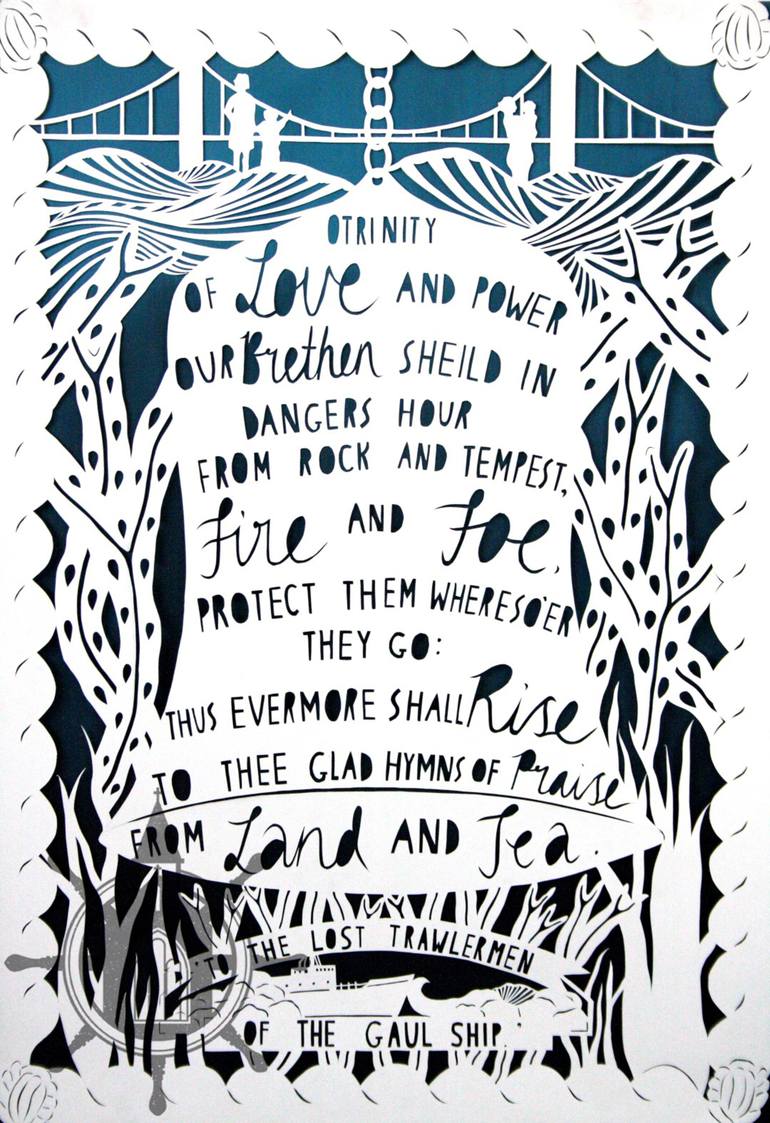 OTRINITY
OF Love AND POWER
OUR Brethen SHEILD IN
DANGERS HOUR
FROM ROCK AND TEMPEST,
Fire AND Foe,
PROTECT THEM WHERESO'ER
THEY GO:
THUS EVERMORE SHALL Rise
TO THEE GLAD HYMNS OF Praise
FROM Land AND Sea.
TO THE LOST TRAWLERMEN
OF THE GAUL SHIP.